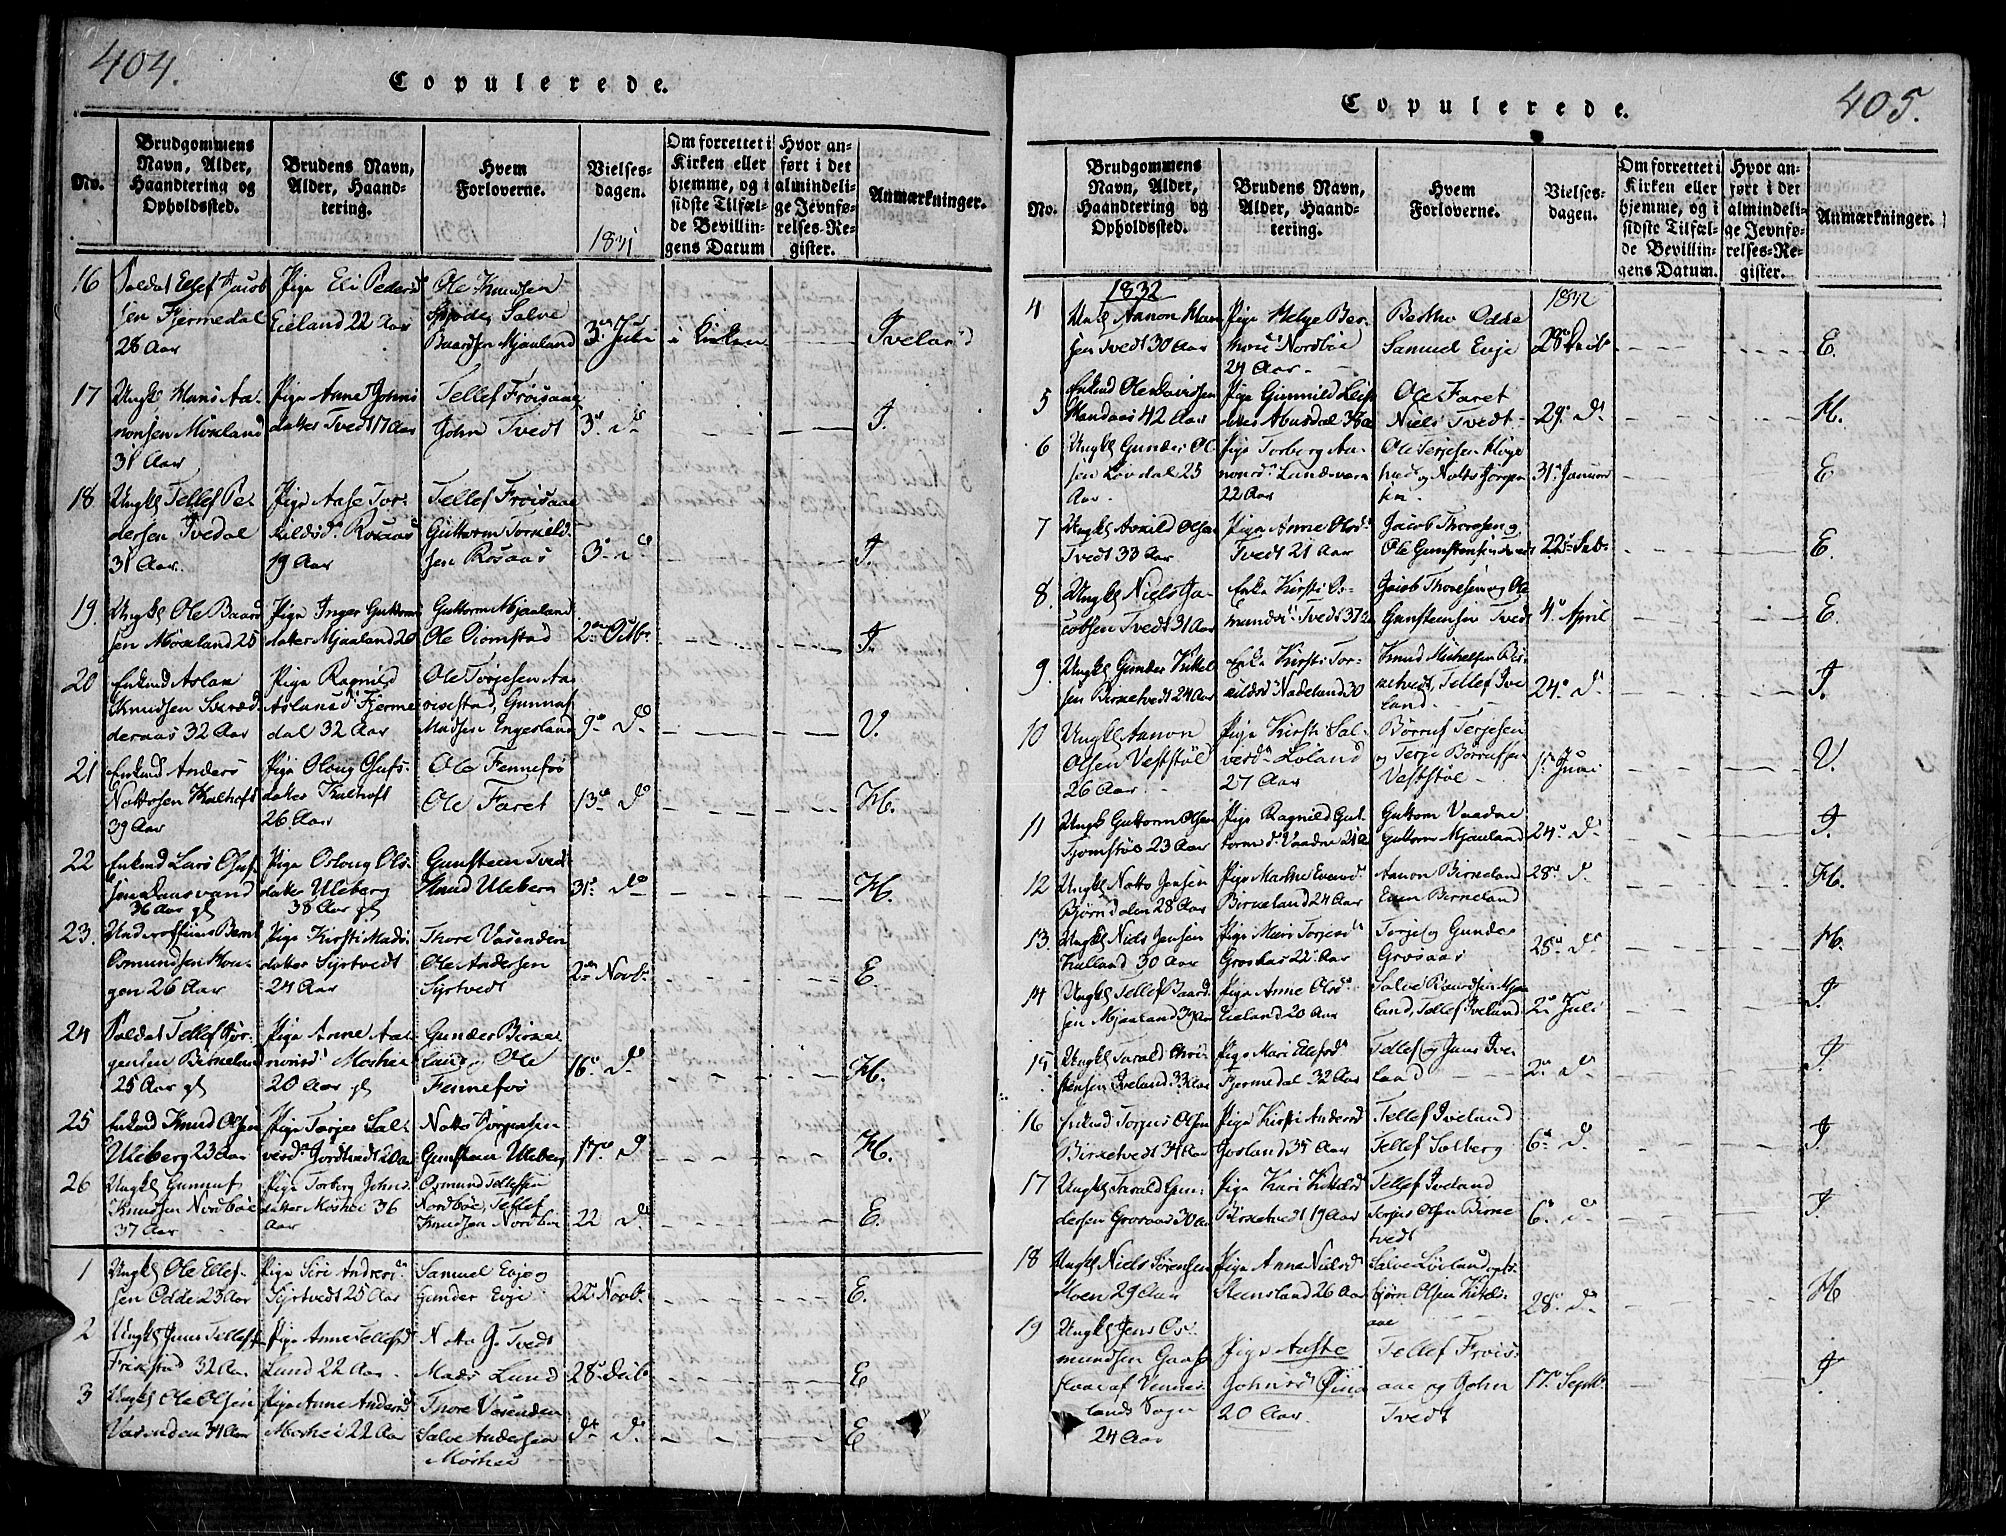 404.
Copulerede.
No.
Brudgommens Navn, Alder, Haandtering og Opholdssted.
Brudens Navn, Alder, Haandtering.
Hvem Forloverne.
Vielsesdagen.
Om forrettet i Kirken eller hjemme, og i sidste Tilfælde Bevillingens Datum
Hvor anført i det almindelige Jevnførelses-Register.
Anmærkninger.
1831
16
Soldat Ellef Jacob
sen Fjermedal
28 Aar
Pige Eli Peders
Eieland 22 Aar
Ole Knudsen
Salve
Baardsen Mjaaland
3die Juli
i Kirken
Iveland
17
Ungk Hans Aa-
nonsen Moseland
31 Aar
Pige Anne Johns
datter Tvedt 17 Aar
Tellef Frøisaae
John Tvedt
3d do
I.
18
Ungk Tellef Pe-
dersen Ivedal
31 Aar.
Pige Aase Tor-
kildsd. Rosaas
19 Aar
Tellef Frøisaae
Guttorm Torkild-
sen Rosaas
3d do
I.
19.
Ungk Ole Baard
sen Moseland 25
Pige Inger Guttorms
datter Mjaaland 20
Guttorm Mjaaland
Ole
2den Octb.
I.
20
Enkmd Aslak
Knudsen
deraas 32 Aar
Pige Ragnild
Aslaksd Fjerme
dal 32 Aar
Ole Torjesen Aa-
Gunnuf
Madsen Engesland
9de do
V.
21
Enkmd Anders
Nottosen Kalhoft
39 Aar
Pige Oloug Olufs-
datter Kalhoft
26 Aar
Ole Fennefos
Ole Faret
13de do
H.
22
Enkmd Lars Oluf
sen Dansvand
36 Aar gl
Pige Osloug Ols-
datter Uleberg
38 Aar gl
Gunsteen Tvedt
Knud Uleberg
31te do
H.
23.
Underofficeer Bernt
Osmundsen Hou-
gen 26 Aar
Pige Kirsti Mads
datter Syrtvedt
24 Aar
Thore Vasenden
Ole Andersen
Syrtvedt
2den Novb.
E.
24
Soldat Tellef Jør-
gensen Birkeland
25 Aar gl
Pige Anne Aa-
nonsd Moshei
20 Aar gl
Gunder Birke
land, Ole
Fennefos
16de do
H.
25
Enkmd Knud Olsen
Uleberg 23 Aar
Pige Torjer Sal-
vesd. 20 Aar
Notto
Gunsteen Uleberg
17de do
H.
26
Ungk Gunnuf
Knudsen Nordbøe
37 Aar
Pige Torberg Johns
datter Moshei 36
Aar
Osmund Tellefsen
Nordbøe, Tellef
Knudsen Nordbøe
22 do
E.
1
Ungk Ole Ellef-
sen Odde 23 Aar
Pige Siri Anders
Syrtvedt 25 Aar
Samuel Evje og
Gunder Evje
22de Novb.
E.
2
Ungk Jens Tellefs
Frikstad 32 Aar
Pige Anne Tellefsd
Lund 22 Aar
Notto G. Tvedt
Mads Lund
28de Decb
E
3
Ungk Ole Olsen
Vasenden 34 Aar
Pige Anne Andersd
Moshei 22 Aar
Thore Vasenden
Salve Andersen
Moshei
do do
E
405.
Copulerede.
No.
Brudgommens Navn, Alder, Haandtering og Opholdssted.
Brudens Navn, Alder, Haandtering.
Hvem Forloverne.
Vielsesdagen.
Om forrettet i Kirken eller hjemme, og i sidste Tilfælde Bevillingens Datum.
Hvor anført i det almindelige Jevnførelses-Register.
Anmærkninger.
1832
1832
4
Ungk Aanon Han
sen Tvedt 30 Aar
Pige Helge Ber-
Nordbøe
24 Aar
Odde
Samuel Evje
28de Decb
E.
5
Enkmd Ole Davidsen
Kandaas 42 Aar
Pige Gunnild
Ole Faret
Niels Tvedt
29de do
H.
6
Ungk Gunder Ol
sen Løvdal 25
Aar
Pige Torberg Aa-
nonsd. Landsverk
22 Aar
Ole Terjesen
31te Januar
E
7
Ungk Askild Olsen
Tvedt 33 Aar
Pige Anne Olsd
Tvedt 21 Aar
Jacob Thoresen og
Ole Gunstensen Tvedt
22de Feb.
E.
8.
Ungk Niels Ja-
cobsen Tvedt 31 Aar
Enke Kirsti Os-
mundsd Tvedt 37 Aar
Jacob Thoresen og Ole
Gunsteinsen Tvedt
4de April
E.
9
Ungk Gunder Kittel
sen Birketvedt 24 Aar
Enke Kirsti Tor-
kildsd Nateland 30
Knud Michelsen Bir-
ketvedt, Tellef Ive
land
24de do
I.
10
Ungk Aanon
Olsen Veststøl
26 Aar
Pige Kirsti Sal-
vesd. Løland
27 Aar
Børruf Terjesen
og Terje Børrufsen
Veststøl
1te Juni
V.
11
Ungk Guttorm Olsen
Tjomstøe 23 Aar
Pige Ragnild Gut-
torm d. Vaadne 21 Aar
Guttorm Vaadne
Guttorm Mjaaland
24de do
I.
12
Ungk Notto Jensen
Bjørndalen 28 Aar
Pige Marthe Evensd
Birkeland 24 Aar
Aanon Birkeland
Even Birkeland
28de do
H.
13.
Ungk Niels Jensen
Hulland 30 Aar
Pige Mari Torjesd
Grosaas 22 Aar
Torje og Gunder
Grosaas
28de do
H.
14
Ungk Tellef Baard
sen Mjaaland 39 Aar
Pige Anne Olsd
Eieland 20 Aar
Salve Baardsen Mjaa
land, Tellef Iveland
2den Juli
I.
15
Ungk Tarald Chri
stensen Iveland 33 Aar
Pige Mari Ellefsd
Fjermedal 32 Aar
Tellef og Jens Ive
land
2den do
I.
16
Enkmd Torjus Olsen
Birketvedt 34 Aar
Pige Kirsti Andersd
Josland 34 Aar
Tellef Iveland
Tellef Solberg
6te do
I.
17
Ungk Tarald Gun-
dersen Grosaas 30 Aar
Pige Kari Kittelsd
Birketvedt 19 Aar
Tellef Iveland
Torjus Olsen Birke
tvedt
6te do
I.
18
Ungk Niels Sørensen
Moen 29 Aar
Pige Anne Nielsd
Steensland 26 Aar
Salve Løvland og
Bjørn Olsen
28de do
H
19
Ungk Jens Os-
mundsen Gaas-
flaae af Vennes
lands Sogn
24 Aar
Pige Aaste
Johnsd Øina
20 Aar
Tellef Frøis-
aae og John
Tvedt
17de Septb.
I.